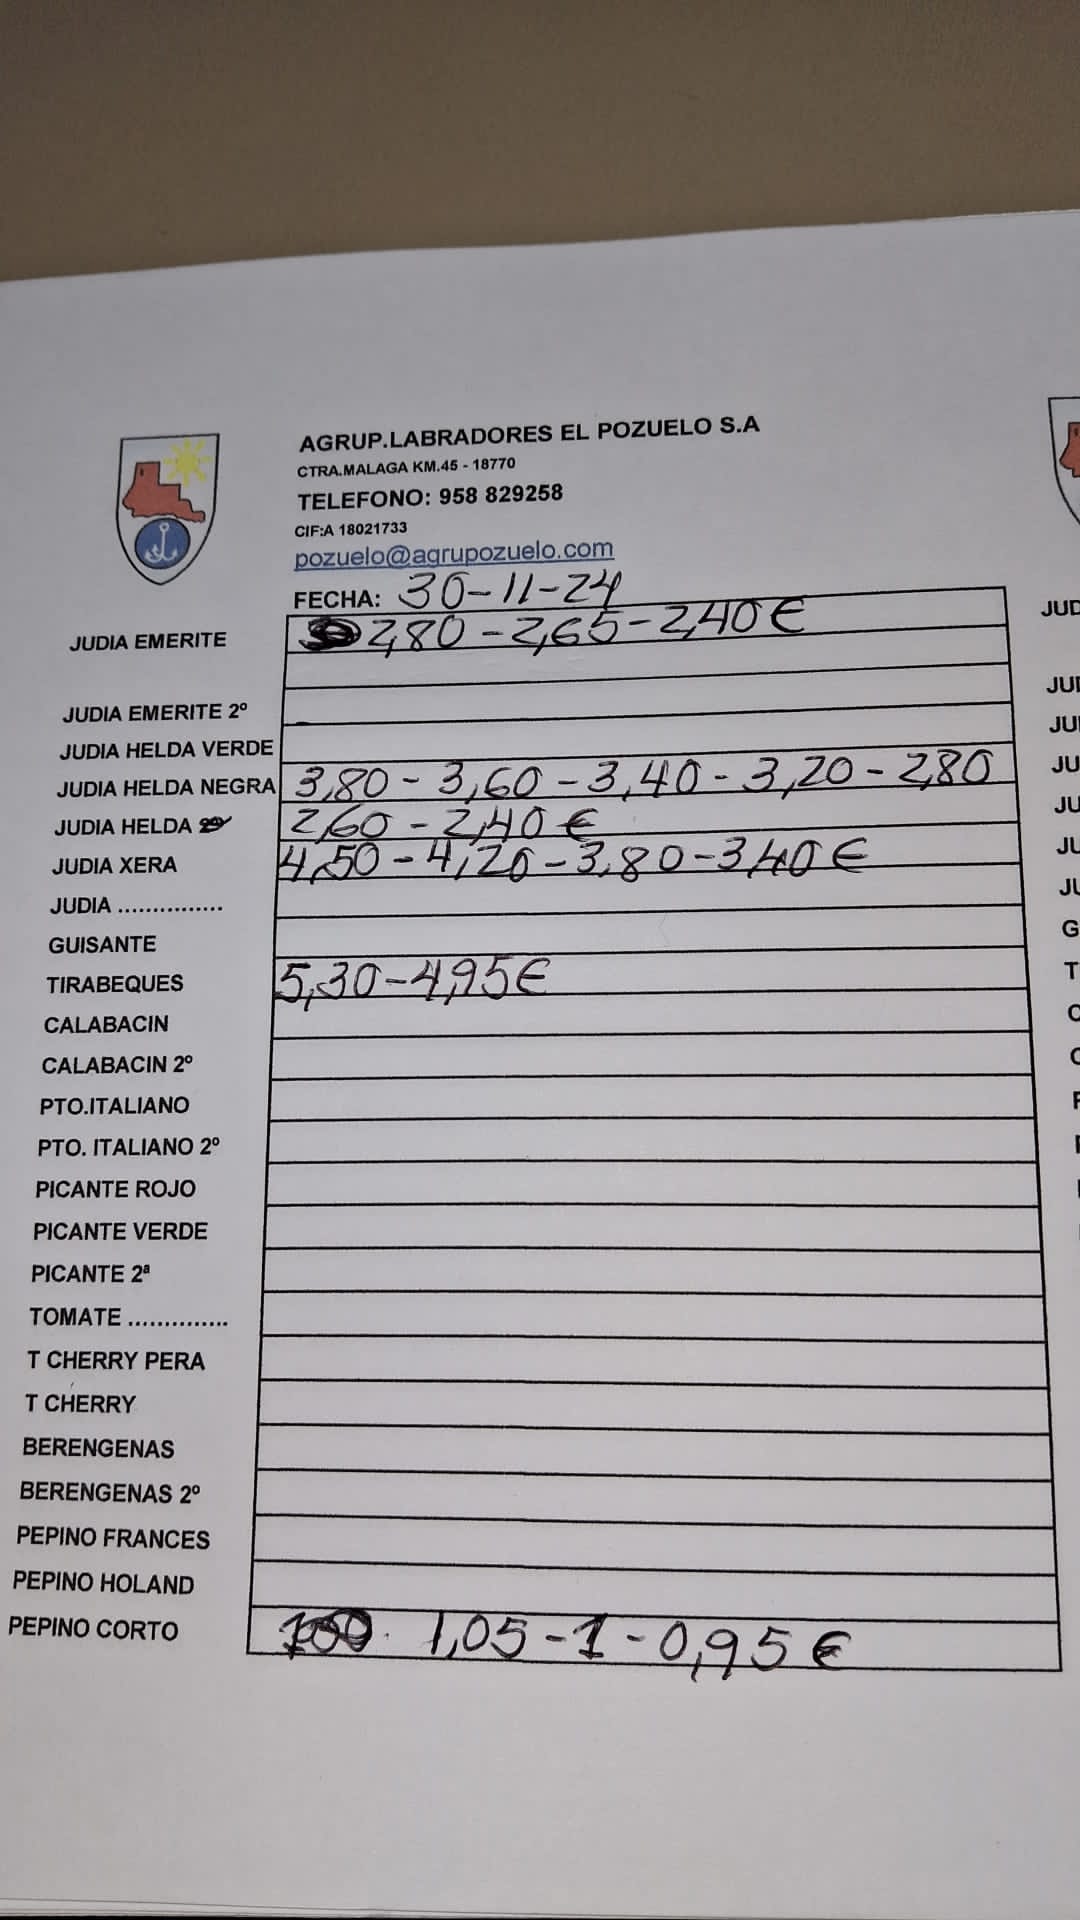 AGRUP.LABRADORES EL POZUELO S.A
CTRA.MALAGA KM.45 - 18770
TELEFONO: 958 829258
CIF:A 18021733
pozuelo@agrupozuelo.com
FECHA: 30-11-24
JUDIA EMERITE 2,80 - 2,65 - 2,40 €
JUDIA EMERITE 2º
JUDIA HELDA VERDE
JUDIA HELDA NEGRA 3,80 - 3,60 - 3,40 - 3,20 - 2,80
JUDIA HELDA 2,60 - 2,40 €
JUDIA XERA 4,50 - 4,20 - 3,80 - 3,40 €
JUDIA ...............
GUISANTE
TIRABEQUES 5,30 - 4,95 €
CALABACIN
CALABACIN 2º
PTO.ITALIANO
PTO. ITALIANO 2º
PICANTE ROJO
PICANTE VERDE
PICANTE 2ª
TOMATE ..............
T CHERRY PERA
T CHERRY
BERENGENAS
BERENGENAS 2º
PEPINO FRANCES
PEPINO HOLAND
PEPINO CORTO 1,05 - 1 - 0,95 €